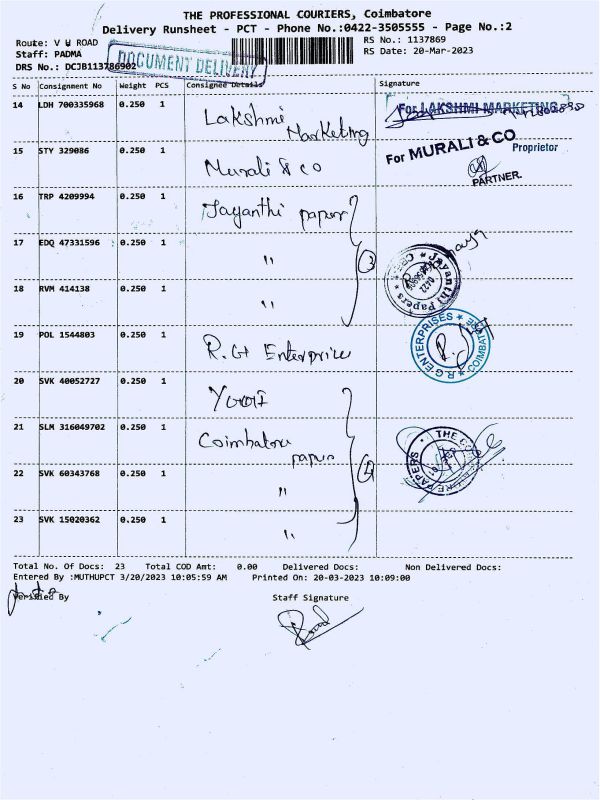 THE PROFESSIONAL COURIERS, Coimbatore
Delivery Runsheet - PCT - Phone No.:0422-3505555 - Page No.:2
Route: V H ROAD
RS No.: 1137869
Staff: PADMA
RS Date: 20-Mar-2023
DRS No.: DCJB113786902
DOCUMENT DELIVERY
S No Consignment No Weight PCS Consignee Details Signature
14 LDH 700335968 0.250 1 Lakshmi Marketing
For LAKSHMI MARKETING
Proprietor
15 STY 329086 0.250 1 Murali & co
For MURALI & CO
PARTNER.
16 TRP 4209994 0.250 1 Jayanthi papers
17 EDQ 47331596 0.250 1 "
3
Jayanthi Papers
18 RVM 414138 0.250 1 "
19 POL 1544803 0.250 1 R.G Enterprise
R G ENTERPRISES
20 SVK 40052727 0.250 1
21 SLM 316049702 0.250 1 Coimbatore papers
22 SVK 60343768 0.250 1 "
4
23 SVK 15020362 0.250 1 "
Total No. Of Docs: 23 Total COD Amt: 0.00 Delivered Docs: Non Delivered Docs:
Entered By :MUTHUPCT 3/20/2023 10:05:59 AM Printed On: 20-03-2023 10:09:00
Verified By Staff Signature